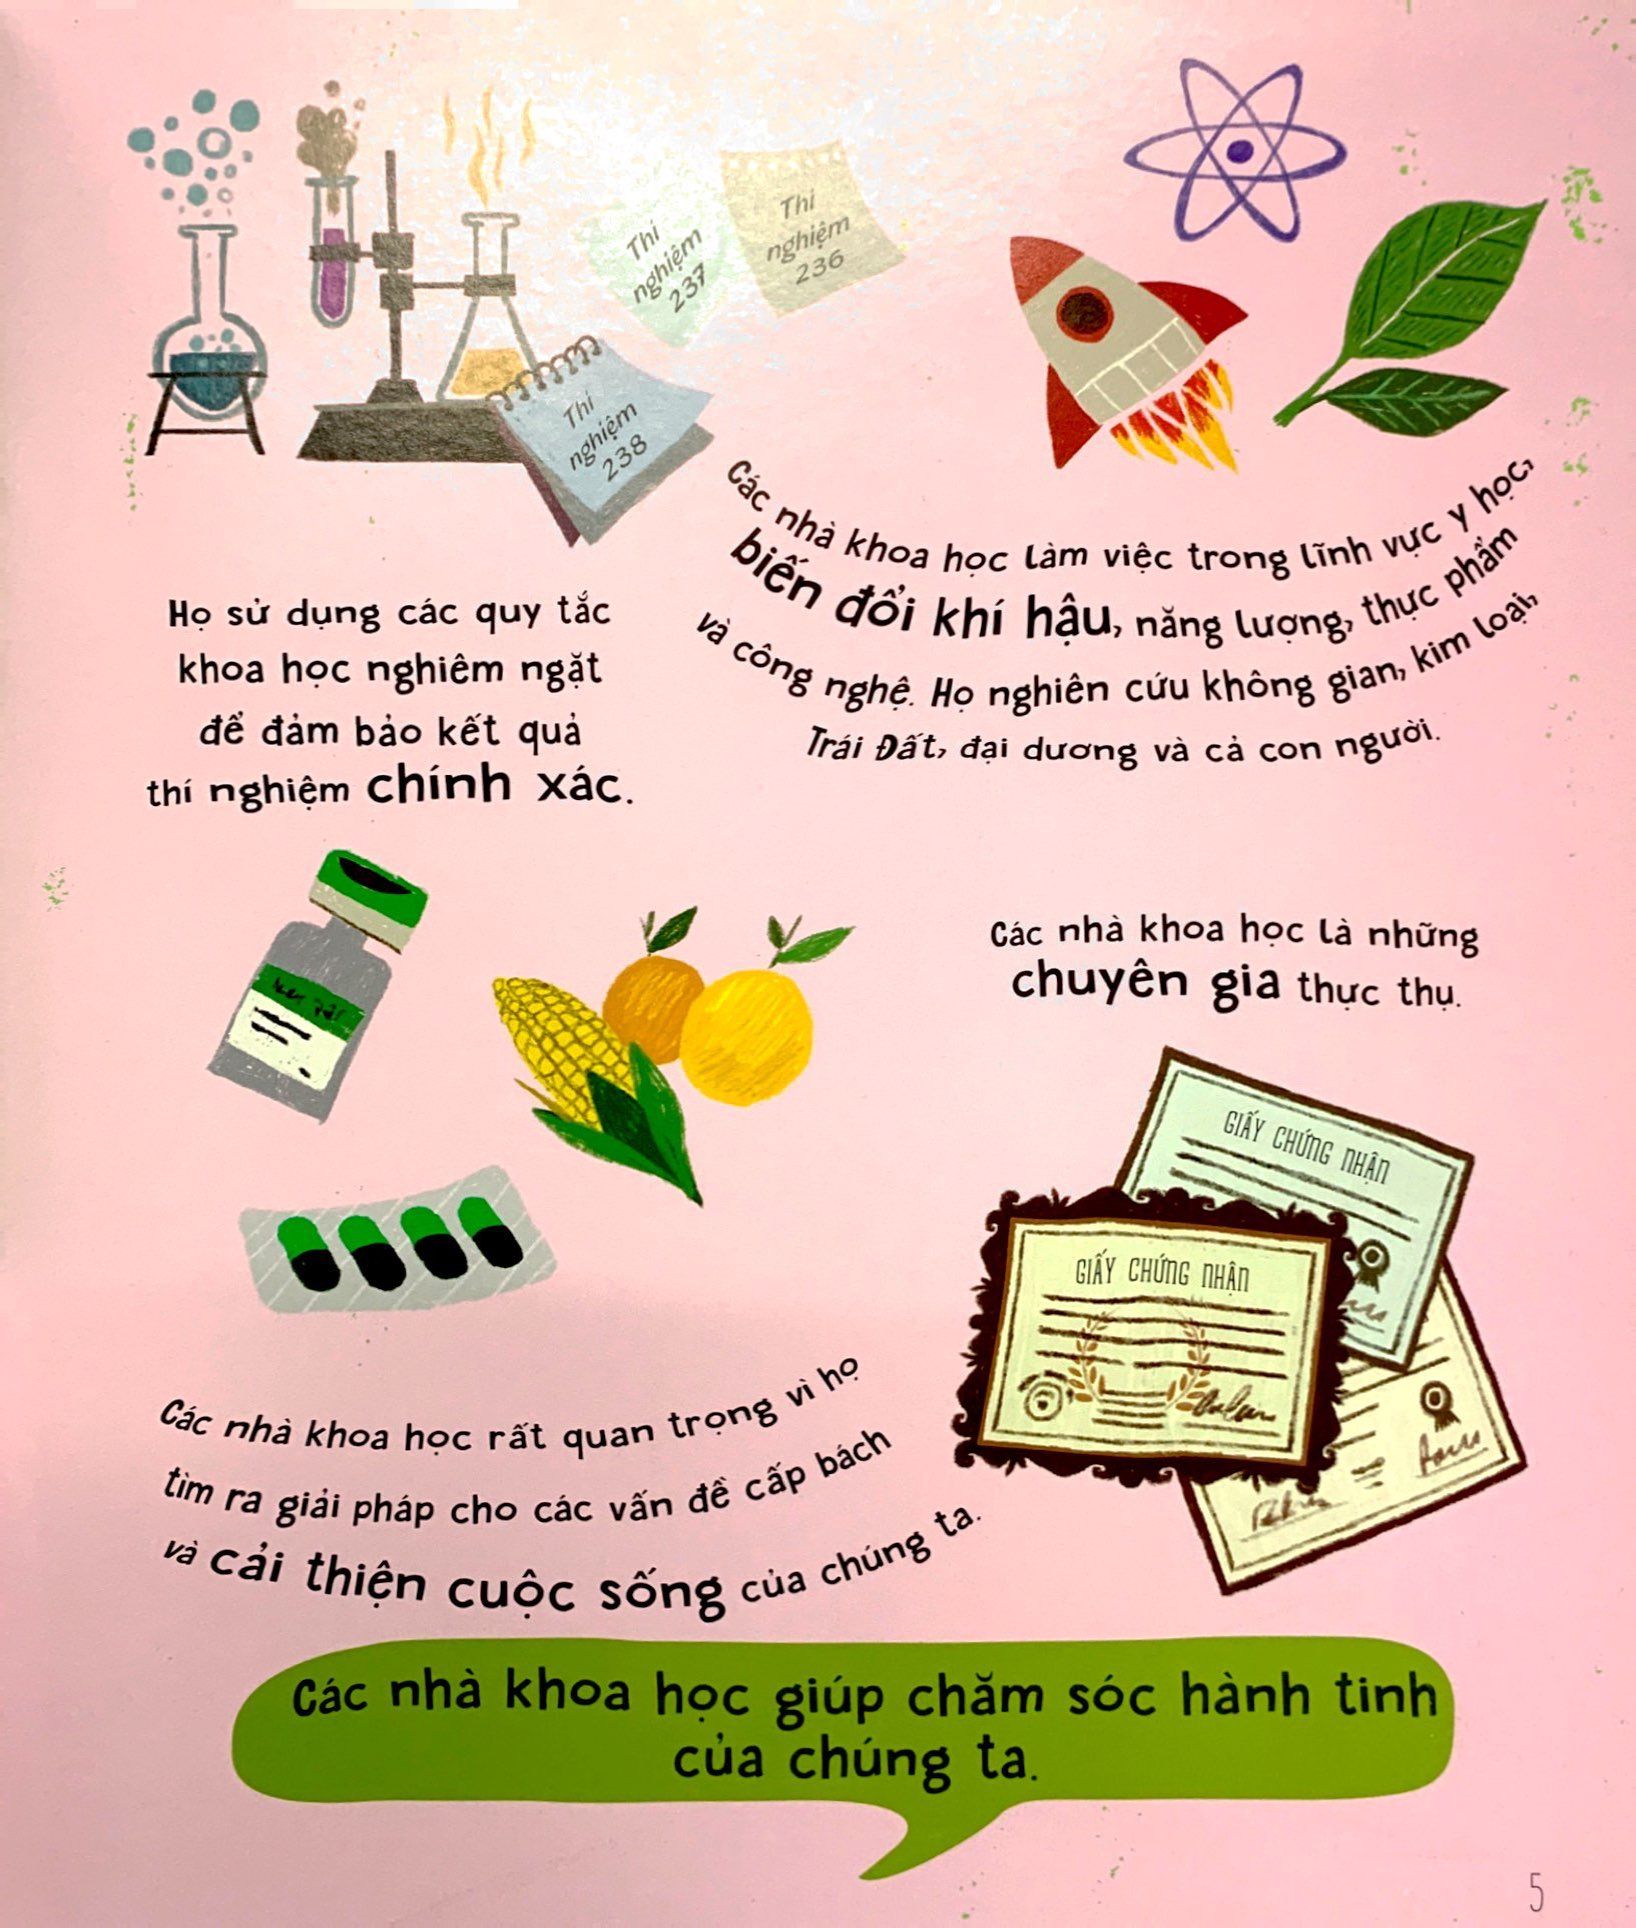 Thí
nghiệm
237
Thí
nghiệm
236
Thí
nghiệm
238
Họ sử dụng các quy tắc
khoa học nghiêm ngặt
để đảm bảo kết quả
thí nghiệm chính xác.
Các nhà khoa học làm việc trong lĩnh vực y học,
biến đổi khí hậu, năng lượng, thực phẩm
và công nghệ. Họ nghiên cứu không gian, kim loại,
Trái Đất, đại dương và cả con người.
Các nhà khoa học là những
chuyên gia thực thụ.
GIẤY CHỨNG NHẬN
GIẤY CHỨNG NHẬN
Các nhà khoa học rất quan trọng vì họ
tìm ra giải pháp cho các vấn đề cấp bách
và cải thiện cuộc sống của chúng ta.
Các nhà khoa học giúp chăm sóc hành tinh
của chúng ta.
5